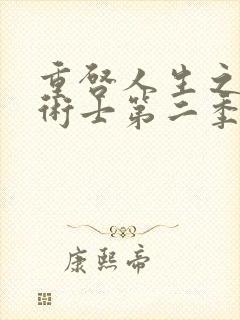 重啓人生之
術士第二季
康熙帝